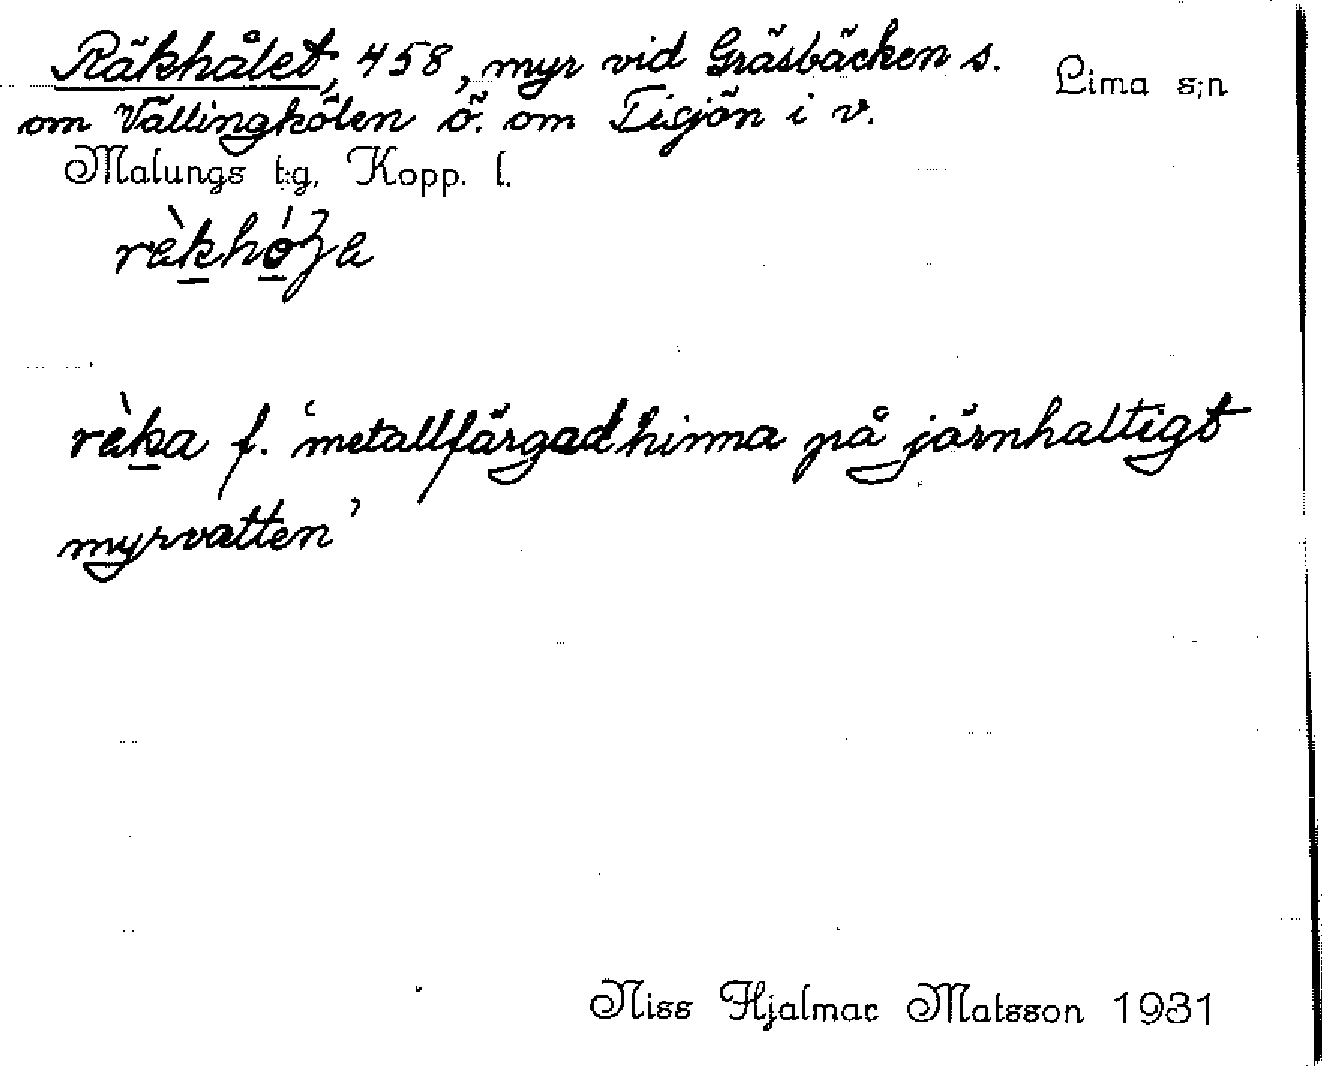 Räkhålet, 458, myr vid Gräsbäcken s. Lima s;n
om Vällingkölen ö. om Tisjön i v.
Malungs t:g, Kopp. l.
rèka f. 'metallfärgad hinna på järnhaltigt
myrvatten'
Niss Hjalmar Matsson 1931